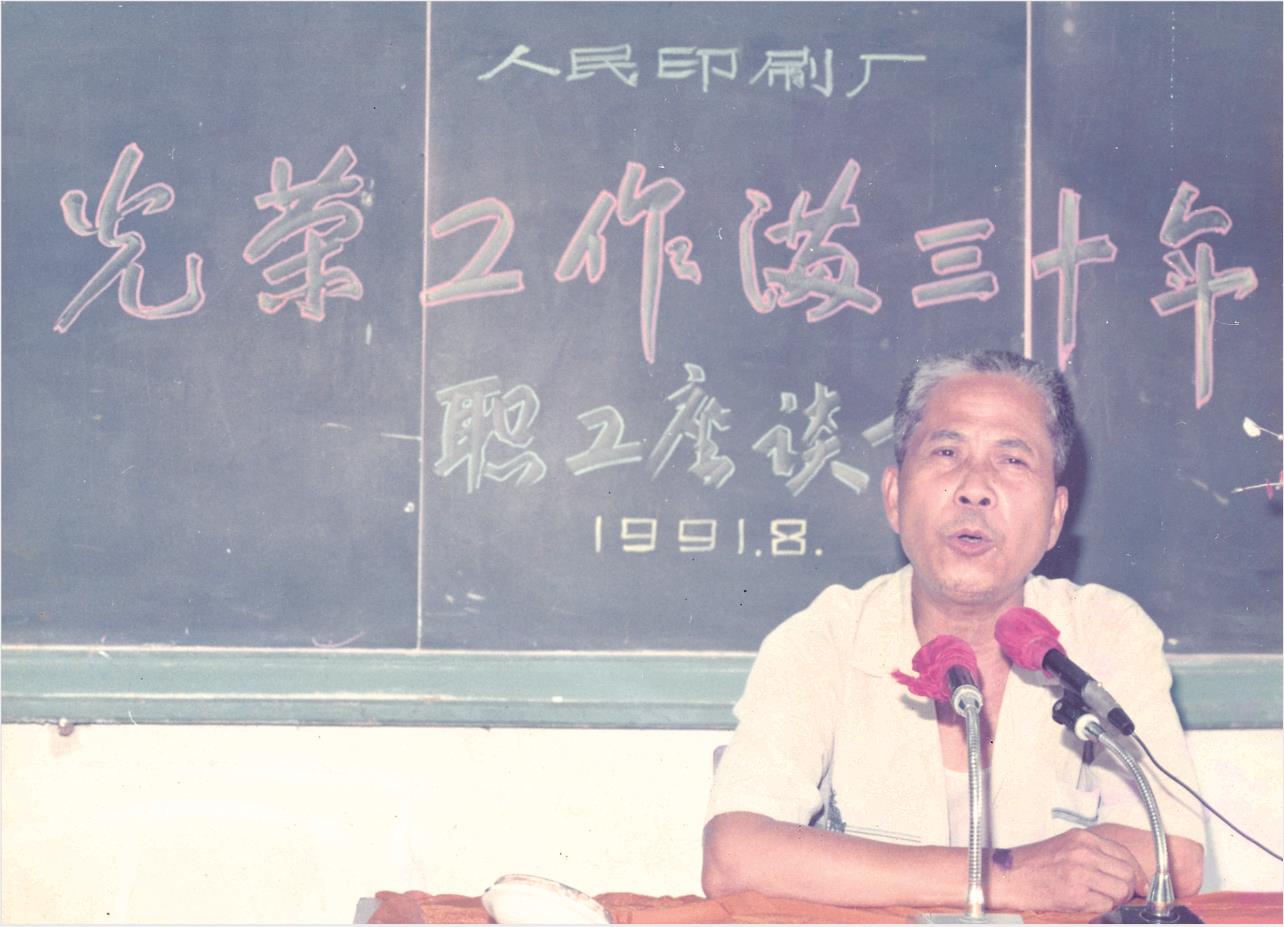 人民印刷厂
光荣工作满三十年
职工座谈
1991.8.